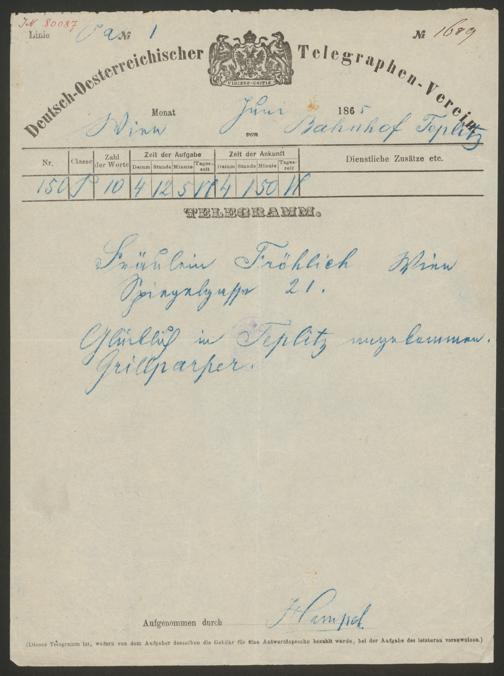 IN 80087
Linie Va № 1
№ 1689
VIRIBUS UNITIS
Deutsch-Oesterreichischer Telegraphen-Verein
Monat Juni 1865
Wien von Bahnhof Teplitz
Nr. Classe Zahl der Worte Zeit der Aufgabe Zeit der Ankunft Dienstliche Zusätze etc.
Datum Stunde Minute Tageszeit Datum Stunde Minute Tageszeit
150 10 4 12 5 4 1 50
TELEGRAMM.
Fräulein Fröhlich Wien
Spiegelgasse 21.
Glücklich in Teplitz angekommen.
Grillparzer.
Aufgenommen durch
(Dieses Telegramm ist, wofern von dem Aufgeber desselben die Gebühr für eine Antwortsdepesche bezahlt wurde, bei der Aufgabe des letzteren vorzuweisen.)